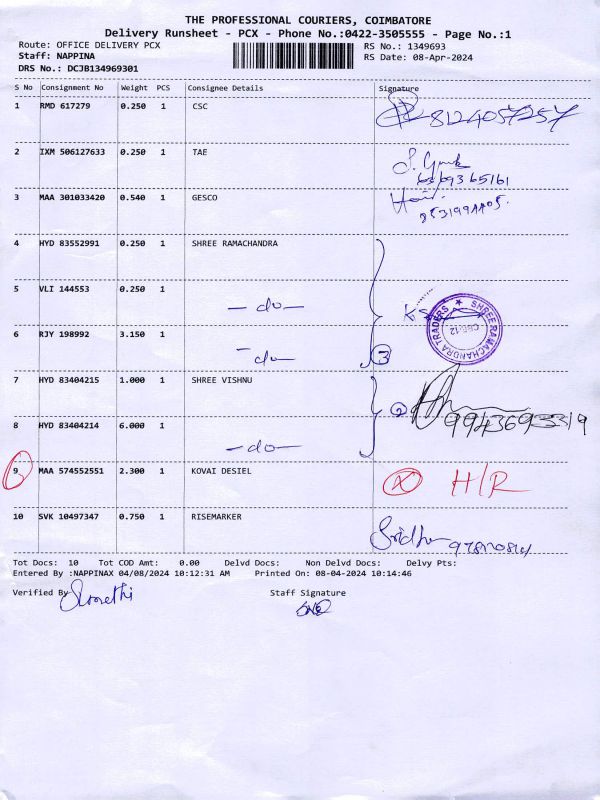 THE PROFESSIONAL COURIERS, COIMBATORE
Delivery Runsheet - PCX - Phone No.:0422-3505555 - Page No.:1
Route: OFFICE DELIVERY PCX RS No.: 1349693
Staff: NAPPINA RS Date: 08-Apr-2024
DRS No.: DCJB134969301
S No Consignment No Weight PCS Consignee Details Signature
1 RMD 617279 0.250 1 CSC 8124057257
2 IXM 506127633 0.250 1 TAE
3 MAA 301033420 0.540 1 GESCO
4 HYD 83552991 0.250 1 SHREE RAMACHANDRA
5 VLI 144553 0.250 1 — do —
SHREE RAMACHANDRA TRADERS
CBE-12
6 RJY 198992 3.150 1 — do — 3
7 HYD 83404215 1.000 1 SHREE VISHNU
2 9943693319
8 HYD 83404214 6.000 1 — do —
9 MAA 574552551 2.300 1 KOVAI DESIEL X H/R
10 SVK 10497347 0.750 1 RISEMARKER Sridhar
Tot Docs: 10 Tot COD Amt: 0.00 Delvd Docs: Non Delvd Docs: Delvy Pts:
Entered By :NAPPINAX 04/08/2024 10:12:31 AM Printed On: 08-04-2024 10:14:46
Verified By Staff Signature